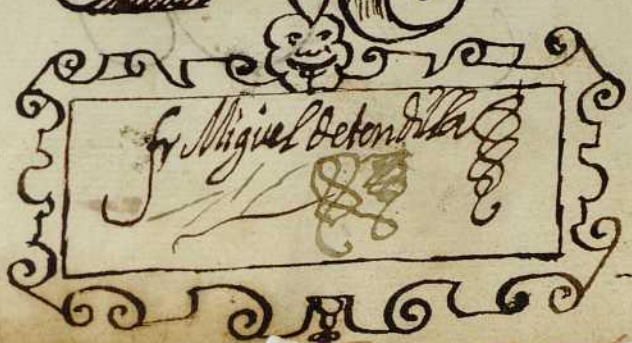 fr Miguel de tendilla